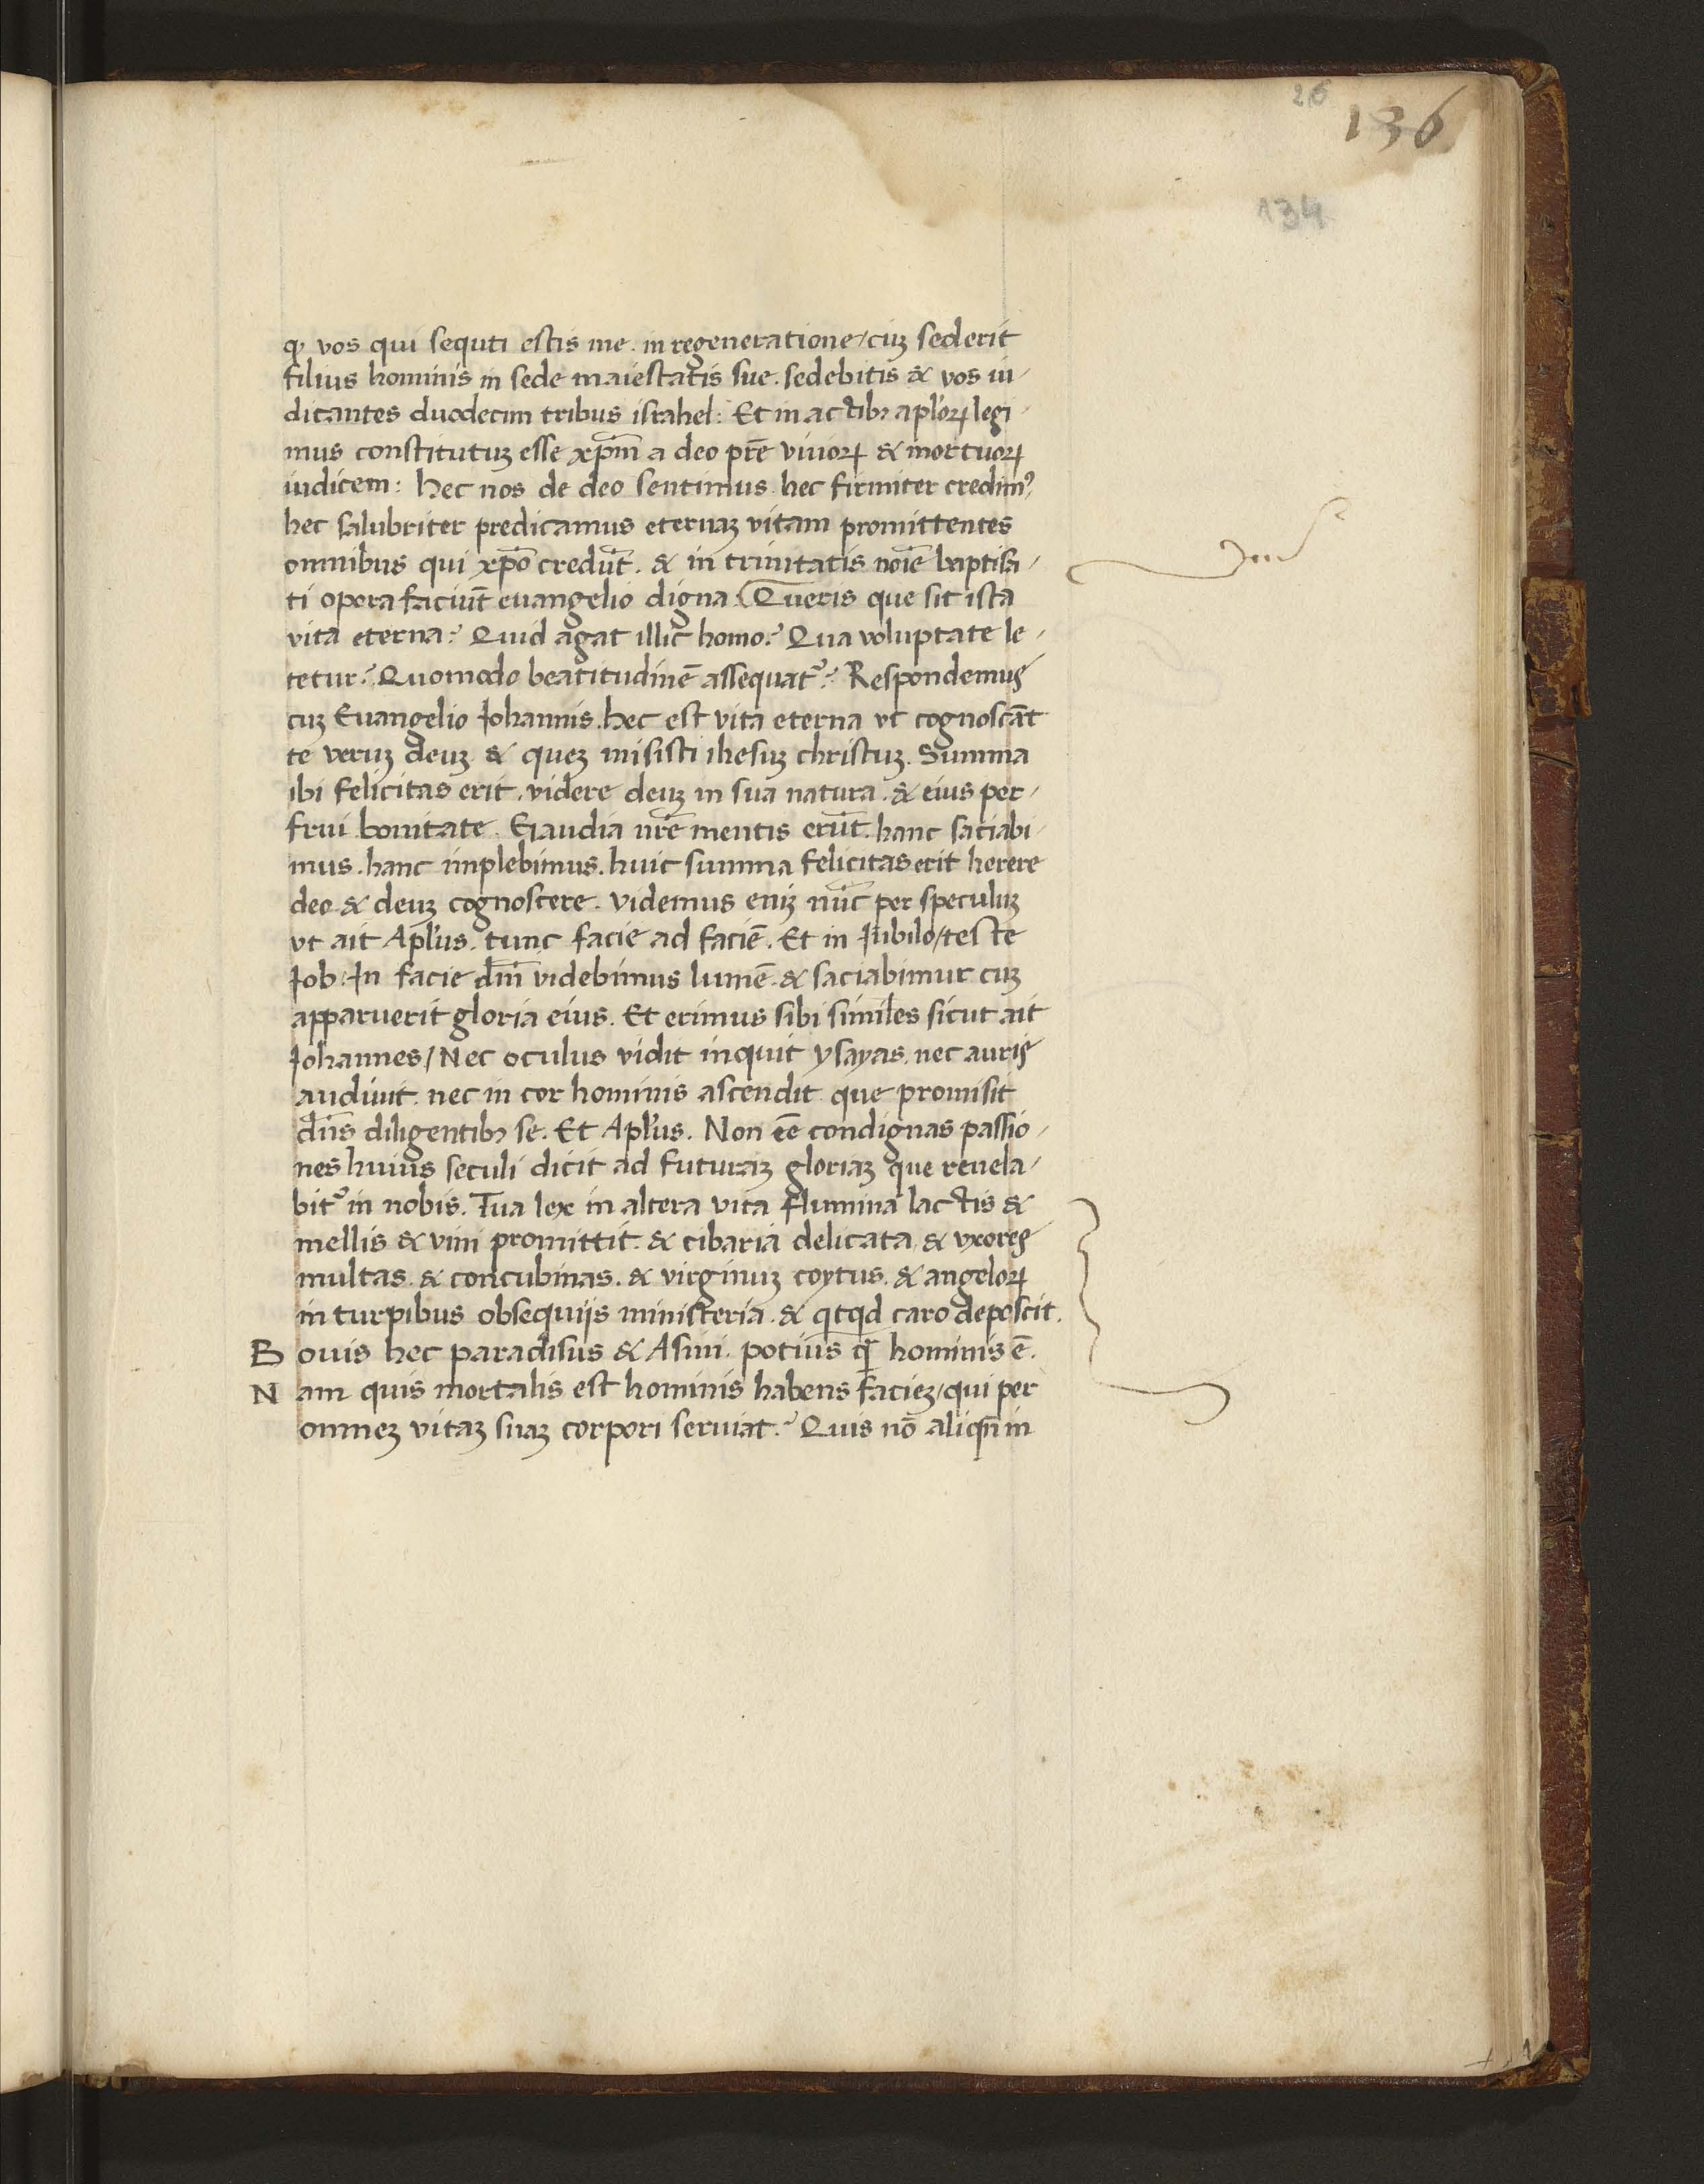 26
136
134
ꝙ vos qui sequti estis me. in regeneratione/cuꝫ sederit
filius hominis in sede maiestatis sue. sedebitis & vos iu/
dicantes duodecim tribus israhel: Et in actibꝫ apl'oꝝ legi/
mus constitutuꝫ esse xp̄m a deo pr̄e vivoꝝ & mortuoꝝ
iudicem: hec nos de deo sentimus. hec firmiter credimꝰ.
hec salubriter predicamus eternaꝫ vitam promittentes
omnibus qui xp̄o credūt. & in trinitatis noīe baptisa/
ti opera faciūt euangelio digna. Queris que sit ista
vita eterna? Quid agat illic homo? Qua voluptate le/
tetur? Quomodo beatitudinē assequatᷣ? Respondemus
cuꝫ Euangelio Iohannis. hec est vita eterna vt cognoscāt
te veruꝫ deuꝫ & queꝫ misisti ihesuꝫ christuꝫ. Summa
ibi felicitas erit. videre deuꝫ in sua natura. & eius per/
frui bonitate. Gaudia nr̄e mentis erūt. hanc saciabi/
mus. hanc implebimus. huic summa felicitas erit herere
deo & deuꝫ cognoscere. videmus eniꝫ nūc per speculuꝫ
vt ait Apl'us. tunc facie ad faciē. Et in Iubilo/teste
Iob. In facie dn̄i videbimus lumē. & saciabimur cuꝫ
apparuerit gloria eius. Et erimus sibi similes sicut ait
Iohannes/Nec oculus vidit inquit ysayas. nec auris
audiuit. nec in cor hominis ascendit que promisit
dn̄s diligentibꝫ se. Et Apl'us. Non eē condignas passio/
nes huius seculi dicit ad futuraꝫ gloriaꝫ que reuela/
bitᷣ in nobis. Tua lex in altera vita flumina lactis &
mellis & vini promittit. & cibaria delicata & vxores
multas. & concubinas. & virginuꝫ coytus. & angeloꝝ
in turpibus obsequijs ministeria. & qͥtqͥd caro deposcit.
Bouis hec paradisus & Asini. potius qͣ̄ hominis ē.
Nam quis mortalis est hominis habens facieꝫ/qui per
omneꝫ vitaꝫ suaꝫ corpori seruiat? Quis nō aliqn̄ in